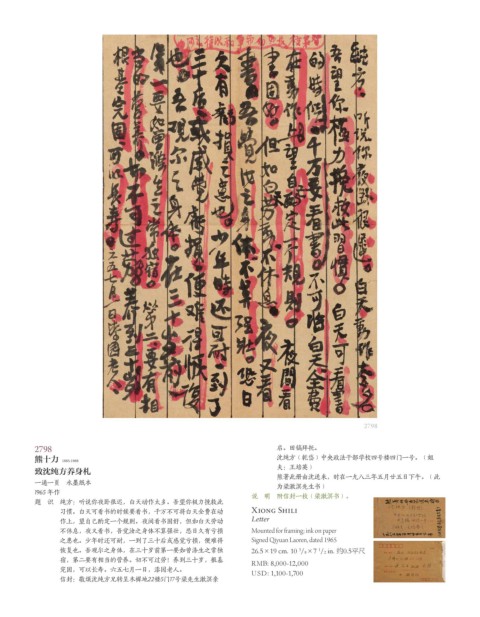 纯方。听说你夜卧很迟。白天动作太多。
吾望你极力挽救此习惯。白天可看书
的时候要看书。千万不可将白天全费
在动作上。望自己酌定一个规则。夜间看
书固好。但如白天劳动不休息。夜又看
书。吾觉汝之身体不算强壮。恐日
久有亏损之患也。少年时还可耐。一到了
三十后。或感觉亏损。便难得恢复
也。吾观尔之身体。在三十岁前
第一要知养生之常
宿。第二要有相
当的营养。切不可过劳。养到三十岁。
根基完固。可以长寿。六五七月一日漆园老人。
2798
2798
熊十力 1885-1968
致沈纯方养身札
一通一页 水墨纸本
1965年作
题 识 纯方：听说你夜卧很迟。白天动作太多。吾望你极力挽救此
习惯。白天可看书的时候要看书，千万不可将白天全费在动
作上。望自己酌定一个规则。夜间看书固好，但如白天劳动
不休息，夜又看书，吾觉汝之身体不算强壮。恐日久有亏损
之患也。少年时还可耐，一到了三十后或感觉亏损，便难得
恢复也。吾观尔之身体，在三十岁前第一要知养生之常
宿，第二要有相当的营养。切不可过劳！养到三十岁，根基
完固，可以长寿。六五七月一日，漆园老人。
信封：敬填沈纯方兄转呈本模地22楼5门17号梁先生漱溟章
名。田镐拜托。
沈纯方（钦岱）中央政法干部学校四号楼四门一号。（姐
夫：王培英）
熊著此册由沈送来，时在一九八三年五月廿五日下午。（此
为梁漱溟先生书）
说 明 附信封一枚（梁漱溟书）。
XIONG SHILI
Letter
Mounted for framing; ink on paper
Signed Qiyuan Laoren, dated 1965
26.5×19 cm. 10 3/8×7 1/2 in. 约0.5平尺
RMB: 8,000-12,000
USD: 1,100-1,700